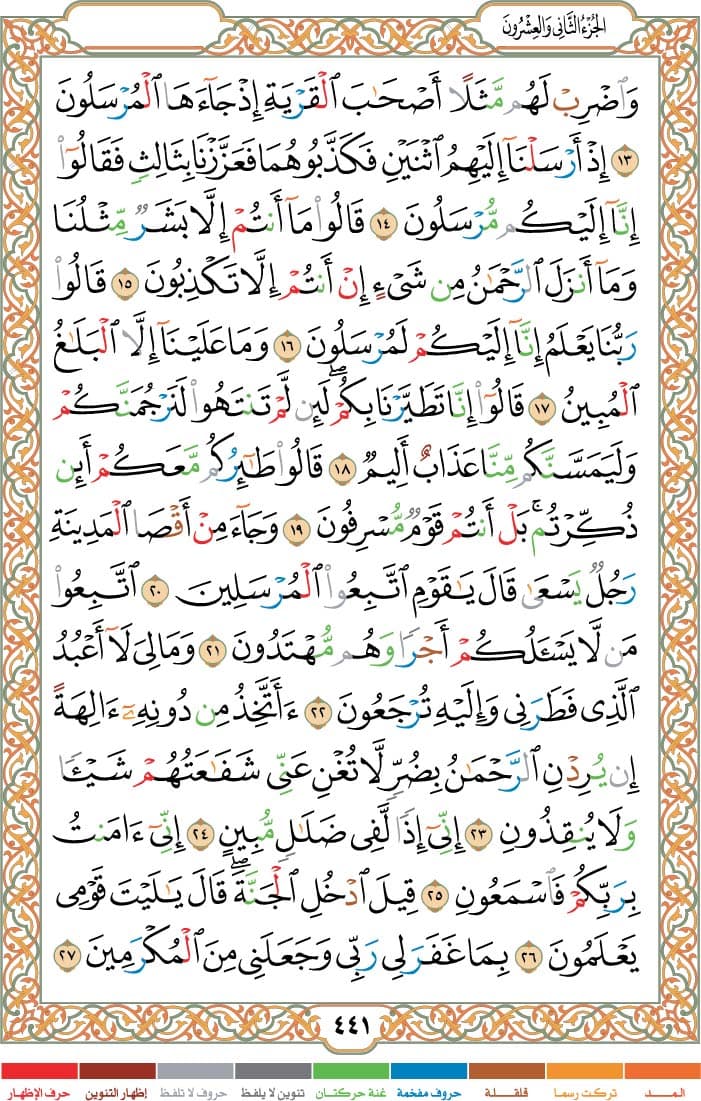 الجزء الثاني والعشرون
وَٱضْرِبْ لَهُم مَّثَلًا أَصْحَٰبَ ٱلْقَرْيَةِ إِذْ جَآءَهَا ٱلْمُرْسَلُونَ
١٣ إِذْ أَرْسَلْنَآ إِلَيْهِمُ ٱثْنَيْنِ فَكَذَّبُوهُمَا فَعَزَّزْنَا بِثَالِثٍ فَقَالُوٓا۟
إِنَّآ إِلَيْكُم مُّرْسَلُونَ ١٤ قَالُوا۟ مَآ أَنتُمْ إِلَّا بَشَرٌ مِّثْلُنَا
وَمَآ أَنزَلَ ٱلرَّحْمَٰنُ مِن شَىْءٍ إِنْ أَنتُمْ إِلَّا تَكْذِبُونَ ١٥ قَالُوا۟
رَبُّنَا يَعْلَمُ إِنَّآ إِلَيْكُمْ لَمُرْسَلُونَ ١٦ وَمَا عَلَيْنَآ إِلَّا ٱلْبَلَٰغُ
ٱلْمُبِينُ ١٧ قَالُوٓا۟ إِنَّا تَطَيَّرْنَا بِكُمْ ۖ لَئِن لَّمْ تَنتَهُوا۟ لَنَرْجُمَنَّكُمْ
وَلَيَمَسَّنَّكُم مِّنَّا عَذَابٌ أَلِيمٌ ١٨ قَالُوا۟ طَٰٓئِرُكُم مَّعَكُمْ أَئِن
ذُكِّرْتُم ۚ بَلْ أَنتُمْ قَوْمٌ مُّسْرِفُونَ ١٩ وَجَآءَ مِنْ أَقْصَا ٱلْمَدِينَةِ
رَجُلٌ يَسْعَىٰ قَالَ يَٰقَوْمِ ٱتَّبِعُوا۟ ٱلْمُرْسَلِينَ ٢٠ ٱتَّبِعُوا۟
مَن لَّا يَسْـَٔلُكُمْ أَجْرًا وَهُم مُّهْتَدُونَ ٢١ وَمَالِىَ لَآ أَعْبُدُ
ٱلَّذِى فَطَرَنِى وَإِلَيْهِ تُرْجَعُونَ ٢٢ ءَأَتَّخِذُ مِن دُونِهِۦٓ ءَالِهَةً
إِن يُرِدْنِ ٱلرَّحْمَٰنُ بِضُرٍّ لَّا تُغْنِ عَنِّى شَفَٰعَتُهُمْ شَيْـًٔا
وَلَا يُنقِذُونِ ٢٣ إِنِّىٓ إِذًا لَّفِى ضَلَٰلٍ مُّبِينٍ ٢٤ إِنِّىٓ ءَامَنتُ
بِرَبِّكُمْ فَٱسْمَعُونِ ٢٥ قِيلَ ٱدْخُلِ ٱلْجَنَّةَ ۖ قَالَ يَٰلَيْتَ قَوْمِى
يَعْلَمُونَ ٢٦ بِمَا غَفَرَ لِى رَبِّى وَجَعَلَنِى مِنَ ٱلْمُكْرَمِينَ ٢٧
٤٤١
المـــد تركت رسما قلقـلة حروف مفخمة غنة حركتان تنوين لا يلفظ حروف لا تلفظ إظهار التنوين حرف الإظهار